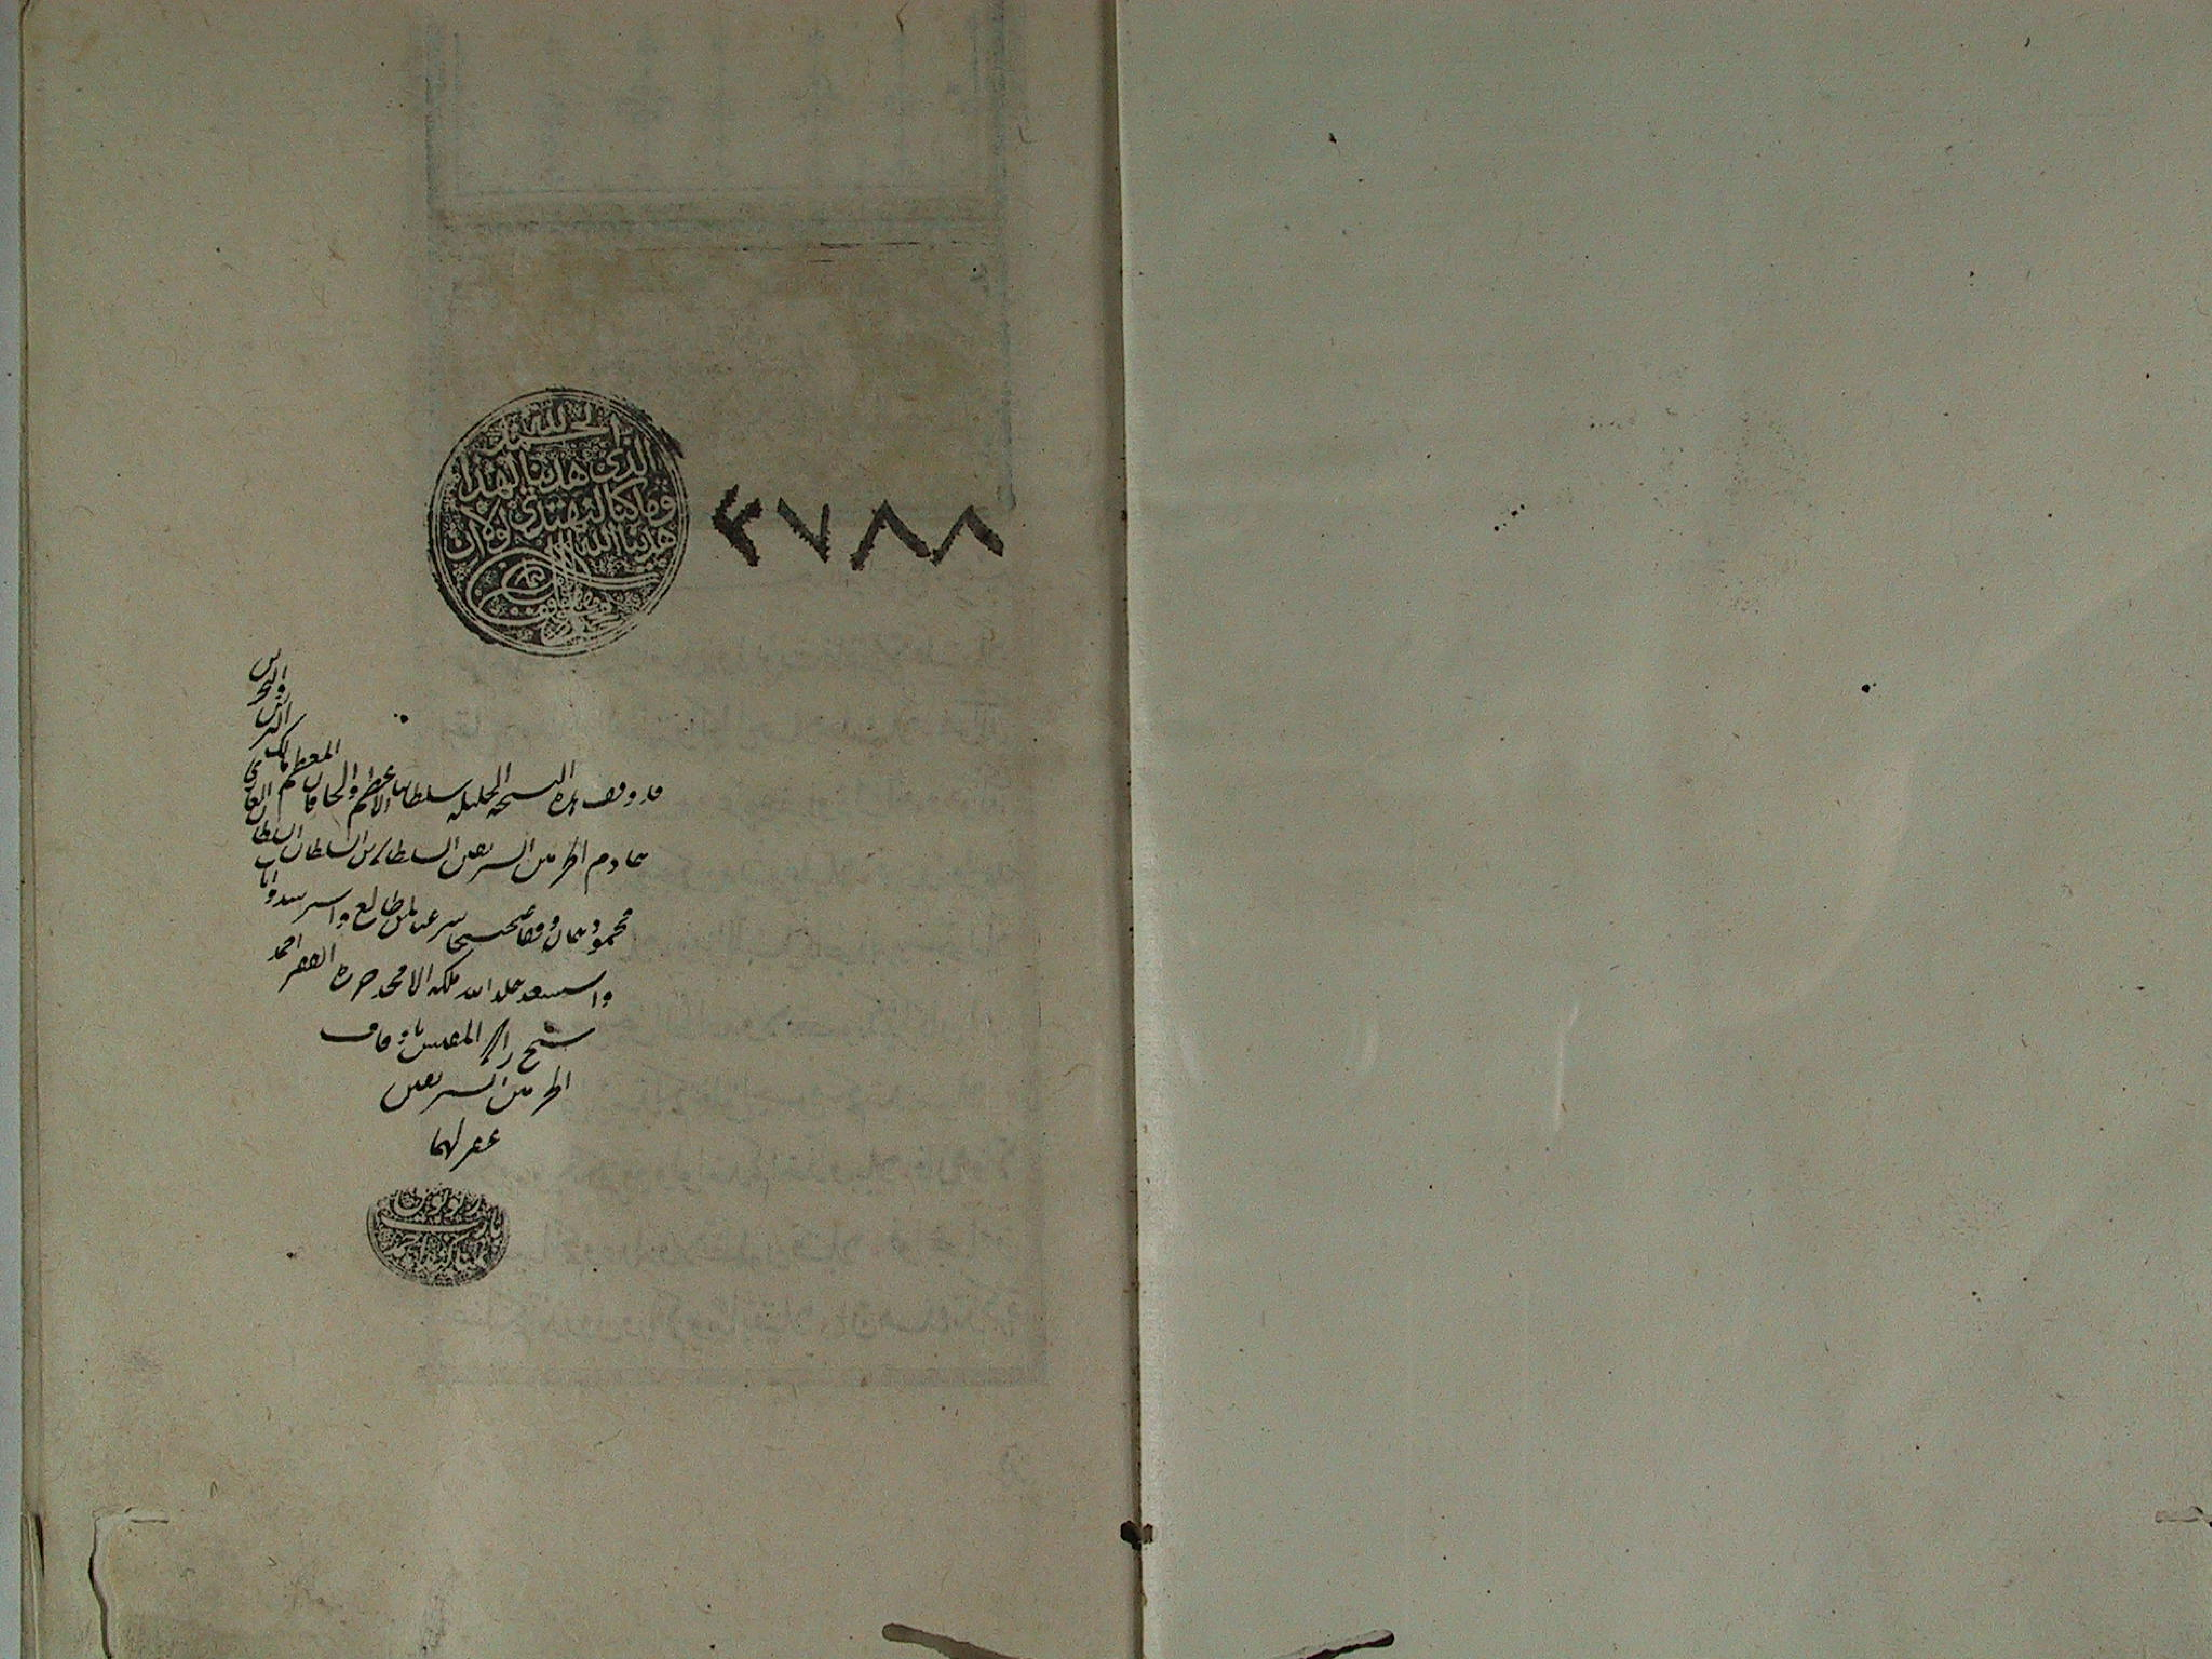 الحمد لله
الذي هدينا لهذا
وما كنا لنهتدي لولا ان
هدينا الله
٣٧٨٨
قد وقف هذه النسخة الجليلة سلطاننا الاعظم والخاقان المعظم مالك البرين والبحرين
خادم الحرمين الشريفين السلطان بن السلطان السلطان الغازي
محمود خان وقفا صحيحا شرعيا لمن طالع واسترشد وانا ب
واستسعد خلد الله ملكه الامجد حرره الفقير احمد
شيخ زاده المفتش باوقاف
الحرمين الشريفين
غفر لهما